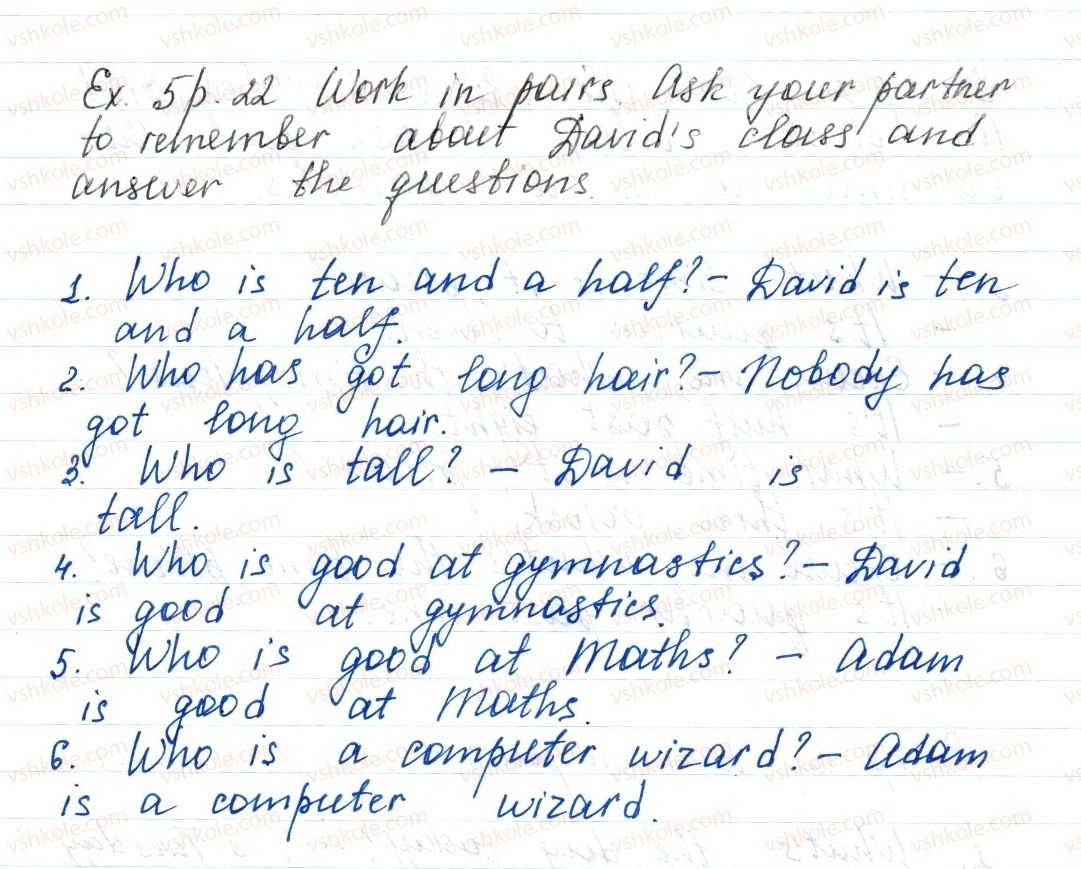 Ex. 5 p. 22 Work in pairs. Ask your partner
to remember about David's class and
answer the questions.
1. Who is ten and a half? – David is ten
and a half.
2. Who has got long hair? – Nobody has
got long hair.
3. Who is tall? – David is
tall.
4. Who is good at gymnastics? – David
is good at gymnastics.
5. Who is good at Maths? – Adam
is good at Maths.
6. Who is a computer wizard? – Adam
is a computer wizard.
vshkole.com